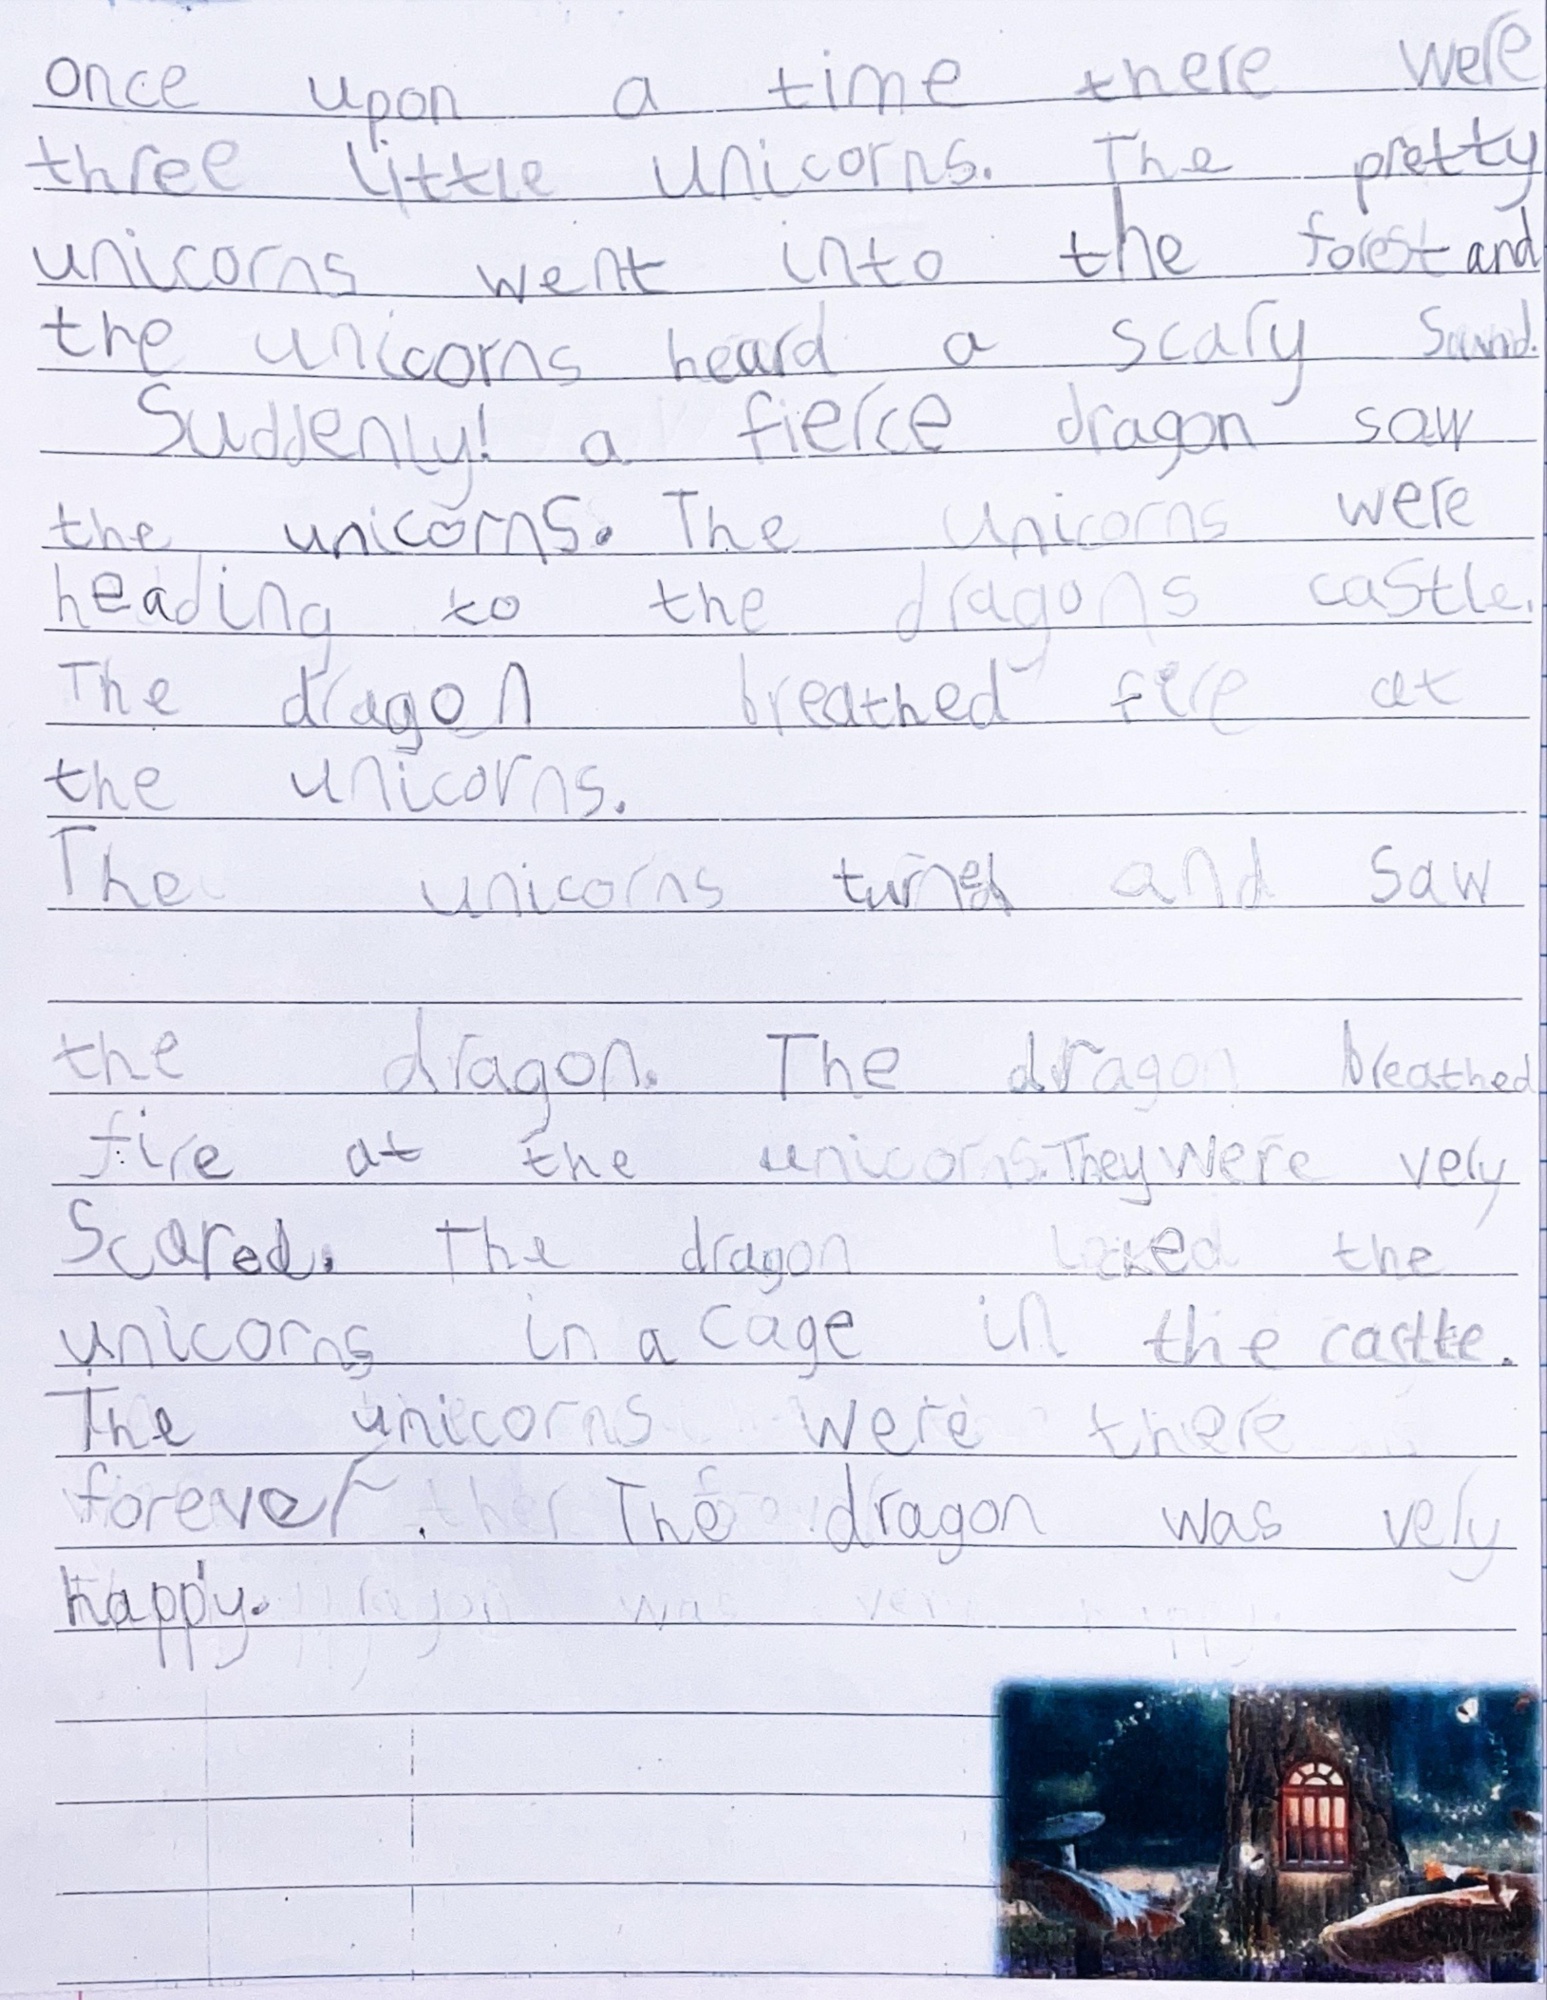 once upon a time there were
three little unicorns. The pretty
unicorns went into the forest and
the unicorns heard a scary sound.
Suddenly! a fierce dragon saw
the unicorns. The unicorns were
heading to the dragons castle.
The dragon breathed fire at
the unicorns.
The unicorns turned and saw
the dragon. The dragon breathed
fire at the unicorns. They were very
Scared. The dragon loced the
unicorns in a cage in the castle.
The unicorns were there
forever. The dragon was very
happy.